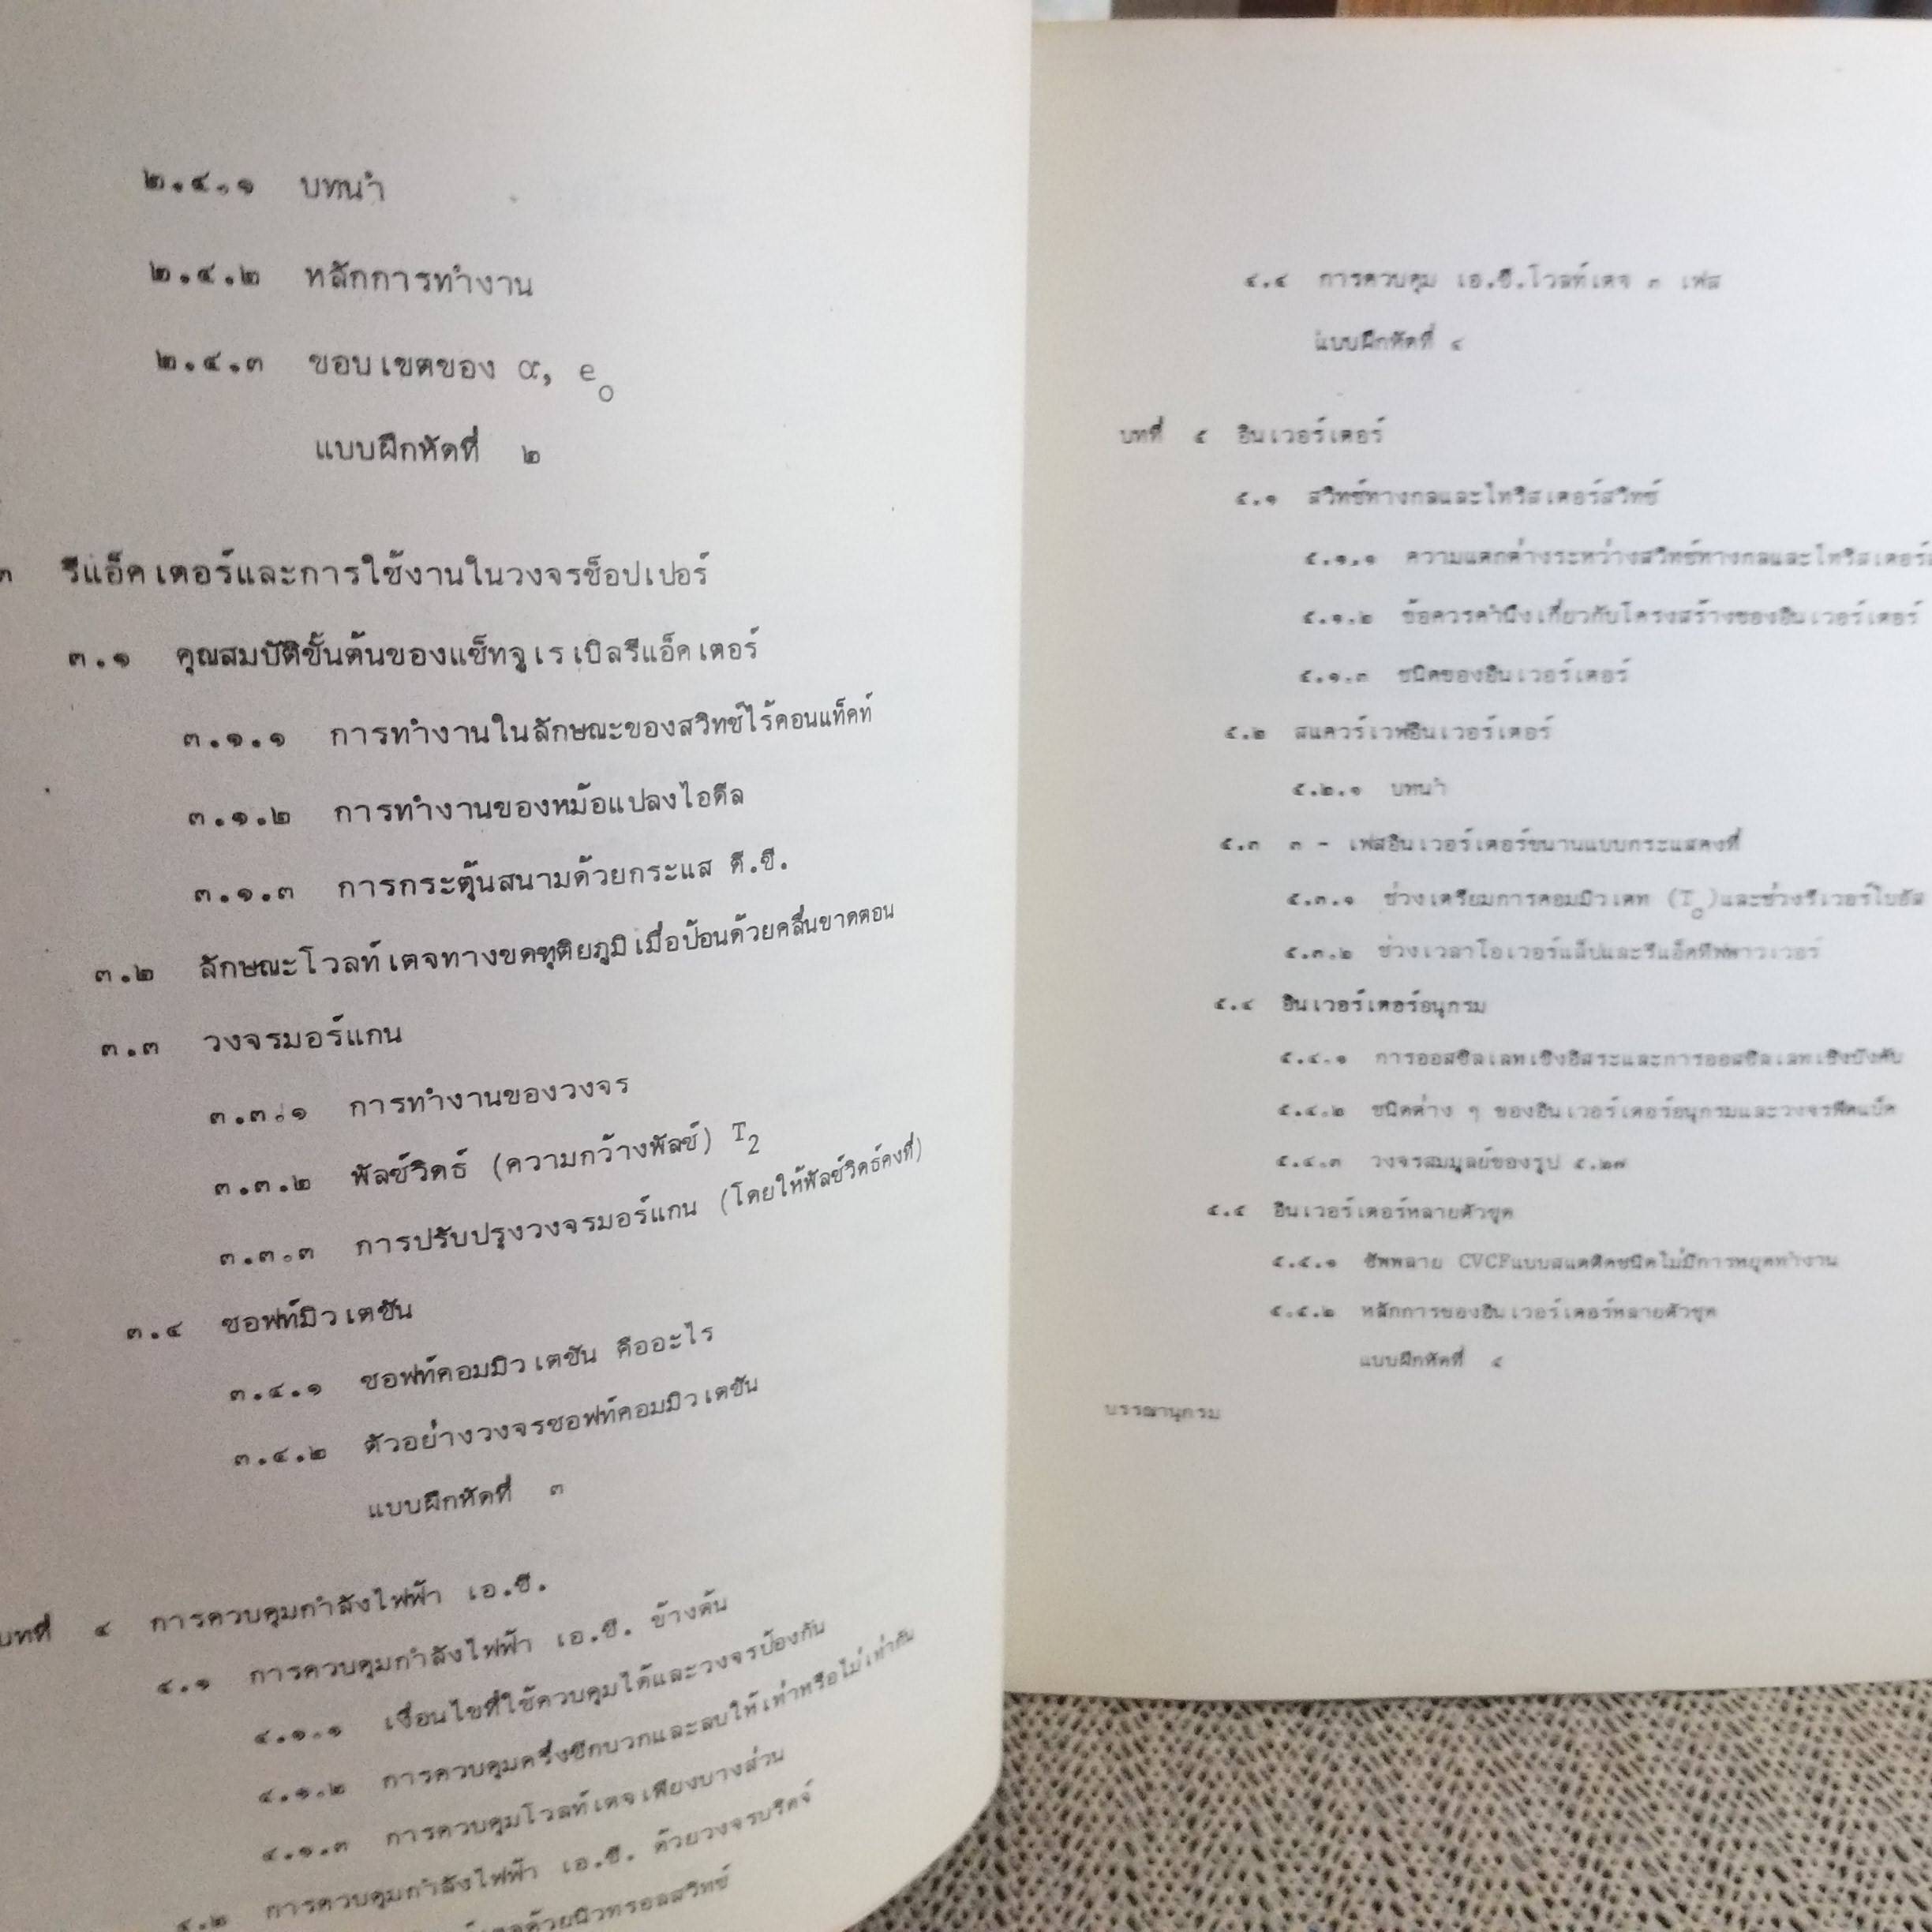 ๒.๔.๑ บทนำ
๒.๔.๒ หลักการทำงาน
๒.๔.๓ ขอบเขตของ α, e₀
แบบฝึกหัดที่ ๒
๓ รีแอ็คเตอร์และการใช้งานในวงจรช็อปเปอร์
๓.๑ คุณสมบัติขั้นต้นของแซ็ทจูเรเบิลรีแอ็คเตอร์
๓.๑.๑ การทำงานในลักษณะของสวิทช์ไร้คอนแท็คท์
๓.๑.๒ การทำงานของหม้อแปลงไอดีล
๓.๑.๓ การกระตุ้นสนามด้วยกระแส ดี.ซี.
๓.๒ ลักษณะโวลท์เตจทางขดทุติยภูมิเมื่อป้อนด้วยคลื่นขาดตอน
๓.๓ วงจรมอร์แกน
๓.๓.๑ การทำงานของวงจร
๓.๓.๒ พัลซ์วิดธ์ (ความกว้างพัลซ์) T₂
๓.๓.๓ การปรับปรุงวงจรมอร์แกน (โดยให้พัลซ์วิดธ์คงที่)
๓.๔ ซอฟท์มิวเตชัน
๓.๔.๑ ซอฟท์คอมมิวเตชัน คืออะไร
๓.๔.๒ ตัวอย่างวงจรซอฟท์คอมมิวเตชัน
แบบฝึกหัดที่ ๓
บทที่ ๔ การควบคุมกำลังไฟฟ้า เอ.ซี.
๔.๑ การควบคุมกำลังไฟฟ้า เอ.ซี. ข้างต้น
๔.๑.๑ เงื่อนไขที่ใช้ควบคุมได้และวงจรป้องกัน
๔.๑.๒ การควบคุมครึ่งซีกบวกและลบให้เท่าหรือไม่เท่ากัน
๔.๑.๓ การควบคุมโวลท์เตจเพียงบางส่วน
๔.๒ การควบคุมกำลังไฟฟ้า เอ.ซี. ด้วยวงจรบริดจ์
ด้วยนิวทรอลสวิทช์
๔.๔ การควบคุม เอ.ซี.โวลท์เตจ ๓ เฟส
แบบฝึกหัดที่ ๔
บทที่ ๕ อินเวอร์เตอร์
๕.๑ สวิทช์ทางกลและไทริสเตอร์สวิทช์
๕.๑.๑ ความแตกต่างระหว่างสวิทช์ทางกลและไทริสเตอร์
๕.๑.๒ ข้อควรคำนึงเกี่ยวกับโครงสร้างของอินเวอร์เตอร์
๕.๑.๓ ชนิดของอินเวอร์เตอร์
๕.๒ สแควร์เวฟอินเวอร์เตอร์
๕.๒.๑ บทนำ
๕.๓ ๓ - เฟสอินเวอร์เตอร์ขนานแบบกระแสคงที่
๕.๓.๑ ช่วงเตรียมการคอมมิวเตท (T₀)และช่วงรีเวอร์ไบอัส
๕.๓.๒ ช่วงเวลาโอเวอร์แล็ปและรีแอ็คทีฟพาวเวอร์
๕.๔ อินเวอร์เตอร์อนุกรม
๕.๔.๑ การออสซิลเลทเชิงอิสระและการออสซิลเลทเชิงบังคับ
๕.๔.๒ ชนิดต่าง ๆ ของอินเวอร์เตอร์อนุกรมและวงจรฟีดแบ็ค
๕.๔.๓ วงจรสมมูลย์ของรูป ๕.๒๗
๕.๕ อินเวอร์เตอร์หลายตัวชุด
๕.๕.๑ ซัพพลาย CVCFแบบสแตติคชนิดไม่มีการหยุดทำงาน
๕.๕.๒ หลักการของอินเวอร์เตอร์หลายตัวชุด
แบบฝึกหัดที่ ๕
บรรณานุกรม